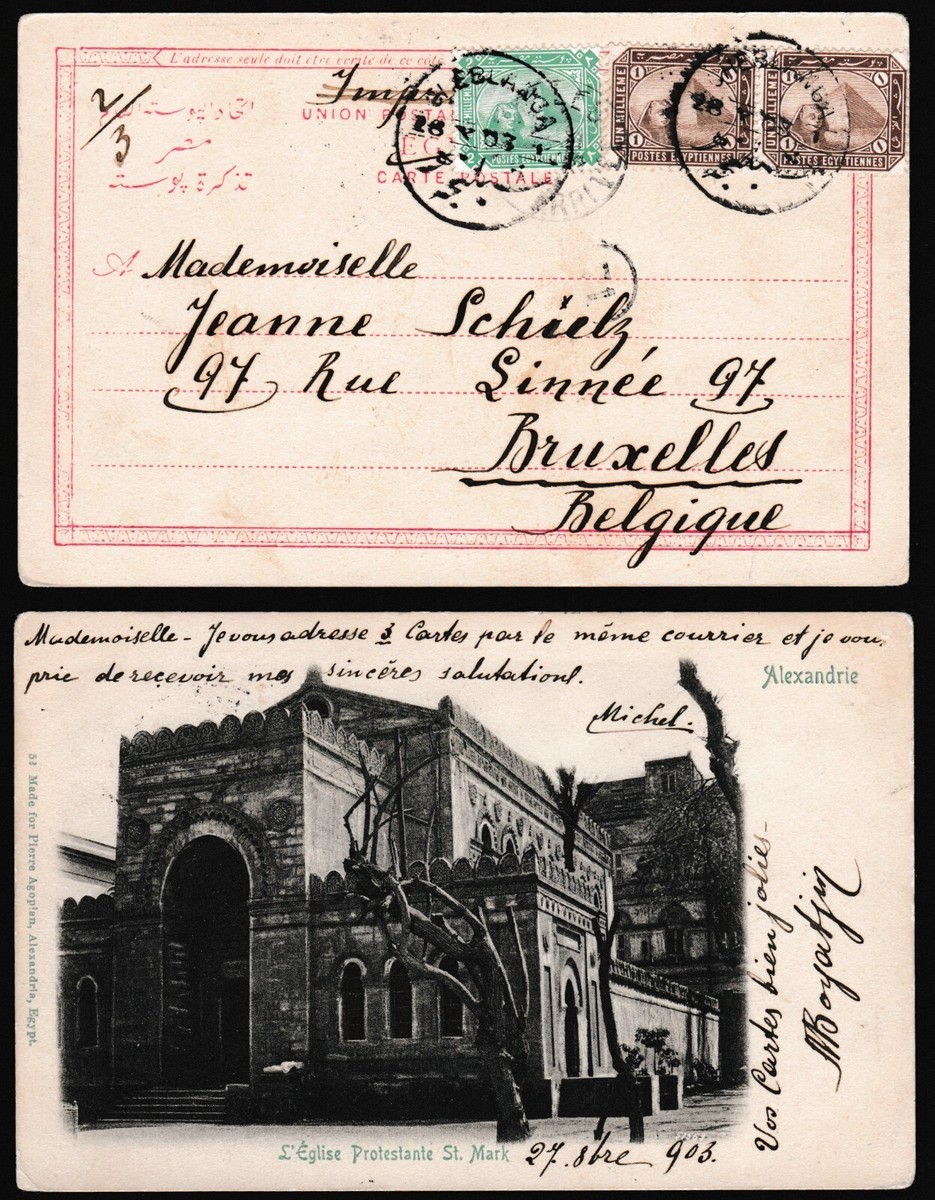 L'adresse seule doit être écrite de ce coté
2/3
UNION POSTALE
CARTE POSTALE
اتحاد البوسته العام
مصر
تذكرة بوستة
2
POSTES EGYPTIENNES
UN MILLIEME
1
POSTES EGYPTIENNES
UN MILLIEME
1
POSTES EGYPTIENNES
28 X 03
A Mademoiselle
Jeanne Schielz
97 Rue Linnée 97
Bruxelles
Belgique
Mademoiselle - Je vous adresse 3 Cartes par le même courrier et je vou
prie de recevoir mes sincères salutations.
Michel.
Alexandrie
52 Made for Pierre Agopian, Alexandria, Egypt.
Vos Cartes bien jolies -
L'Église Protestante St. Mark
27. 8bre 903.